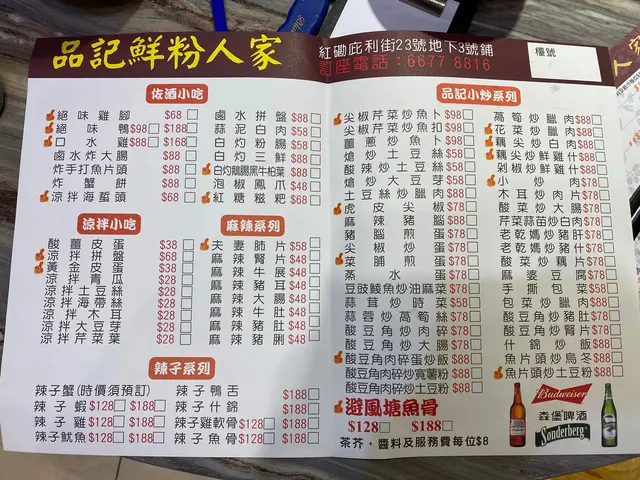 品記鮮粉人家
紅磡庇利街23號地下3號鋪
訂座電話：6677 8816
檯號
佐酒小吃
絕味雞腳 $68
絕味鴨 $98 $188
口水雞 $88 $168
鹵水炸大腸 $88
炸手打魚片頭 $58
炸蟹餅 $88
涼拌海蜇頭 $68
鹵水拼盤 $88
蒜泥白肉 $58
白灼粉腸 $58
白灼三鮮 $88
白灼鵝腸黑牛柏葉 $88
泡椒鳳爪 $48
紅糖糍粑 $68
涼拌小吃
酸薑皮蛋 $38
涼拌拼盤 $68
黃金皮蛋 $68
涼拌青瓜 $28
涼拌土豆絲 $28
涼拌海帶絲 $28
涼拌木耳 $28
涼拌大豆芽 $28
涼拌芹菜葉 $28
麻辣系列
夫妻肺片 $58
麻辣腎片 $48
麻辣牛展 $48
麻辣豬耳 $48
麻辣大腸 $48
麻辣牛肚 $48
麻辣豬肚 $48
麻辣豬脷 $48
辣子系列
辣子蟹(時價須預訂)
辣子蝦 $128 $188
辣子雞 $128 $188
辣子魷魚 $128 $188
辣子鴨舌 $188
辣子什錦 $188
辣子雞軟骨 $128 $188
辣子魚骨 $128 $188
品記小炒系列
尖椒芹菜炒魚卜 $98
尖椒芹菜炒魚扣 $98
薑蔥炒魚卜 $98
熗炒土豆絲 $58
酸辣炒土豆絲 $58
熗炒大豆芽 $58
土豆絲炒臘肉 $88
虎皮尖椒 $58
麻辣豬腦 $88
豬腦煎蛋 $88
尖椒炒蛋 $58
菜脯煎蛋 $58
蒸水蛋 $58
豆豉鯪魚炒油麻菜 $78
蒜茸炒時菜 $58
蒜蓉炒萵筍絲 $78
酸豆角炒肉碎 $78
酸豆角炒大腸 $78
酸豆角肉碎蛋炒飯 $88
酸豆角肉碎炒寬薯粉 $88
酸豆角肉碎炒土豆粉 $88
避風塘魚骨
$128 $188
茶芥，醬料及服務費每位$8
萵筍炒臘肉 $88
花菜炒臘肉 $88
藕尖炒白肉 $88
藕尖炒鮮雞什 $88
剁椒炒鮮雞什 $88
小炒肉 $78
木耳炒肉片 $78
酸菜炒大腸 $78
芹菜蒜苗炒白肉 $78
老乾媽炒豬肝 $78
老乾媽炒豬什 $78
酸菜炒藕片 $78
麻婆豆腐 $78
手撕包菜 $58
包菜炒臘肉 $88
酸豆角炒腎片 $88
什錦炒飯 $88
魚片頭炒烏冬 $88
魚片頭炒土豆粉 $88
Budweiser
森堡啤酒
Sonderberg